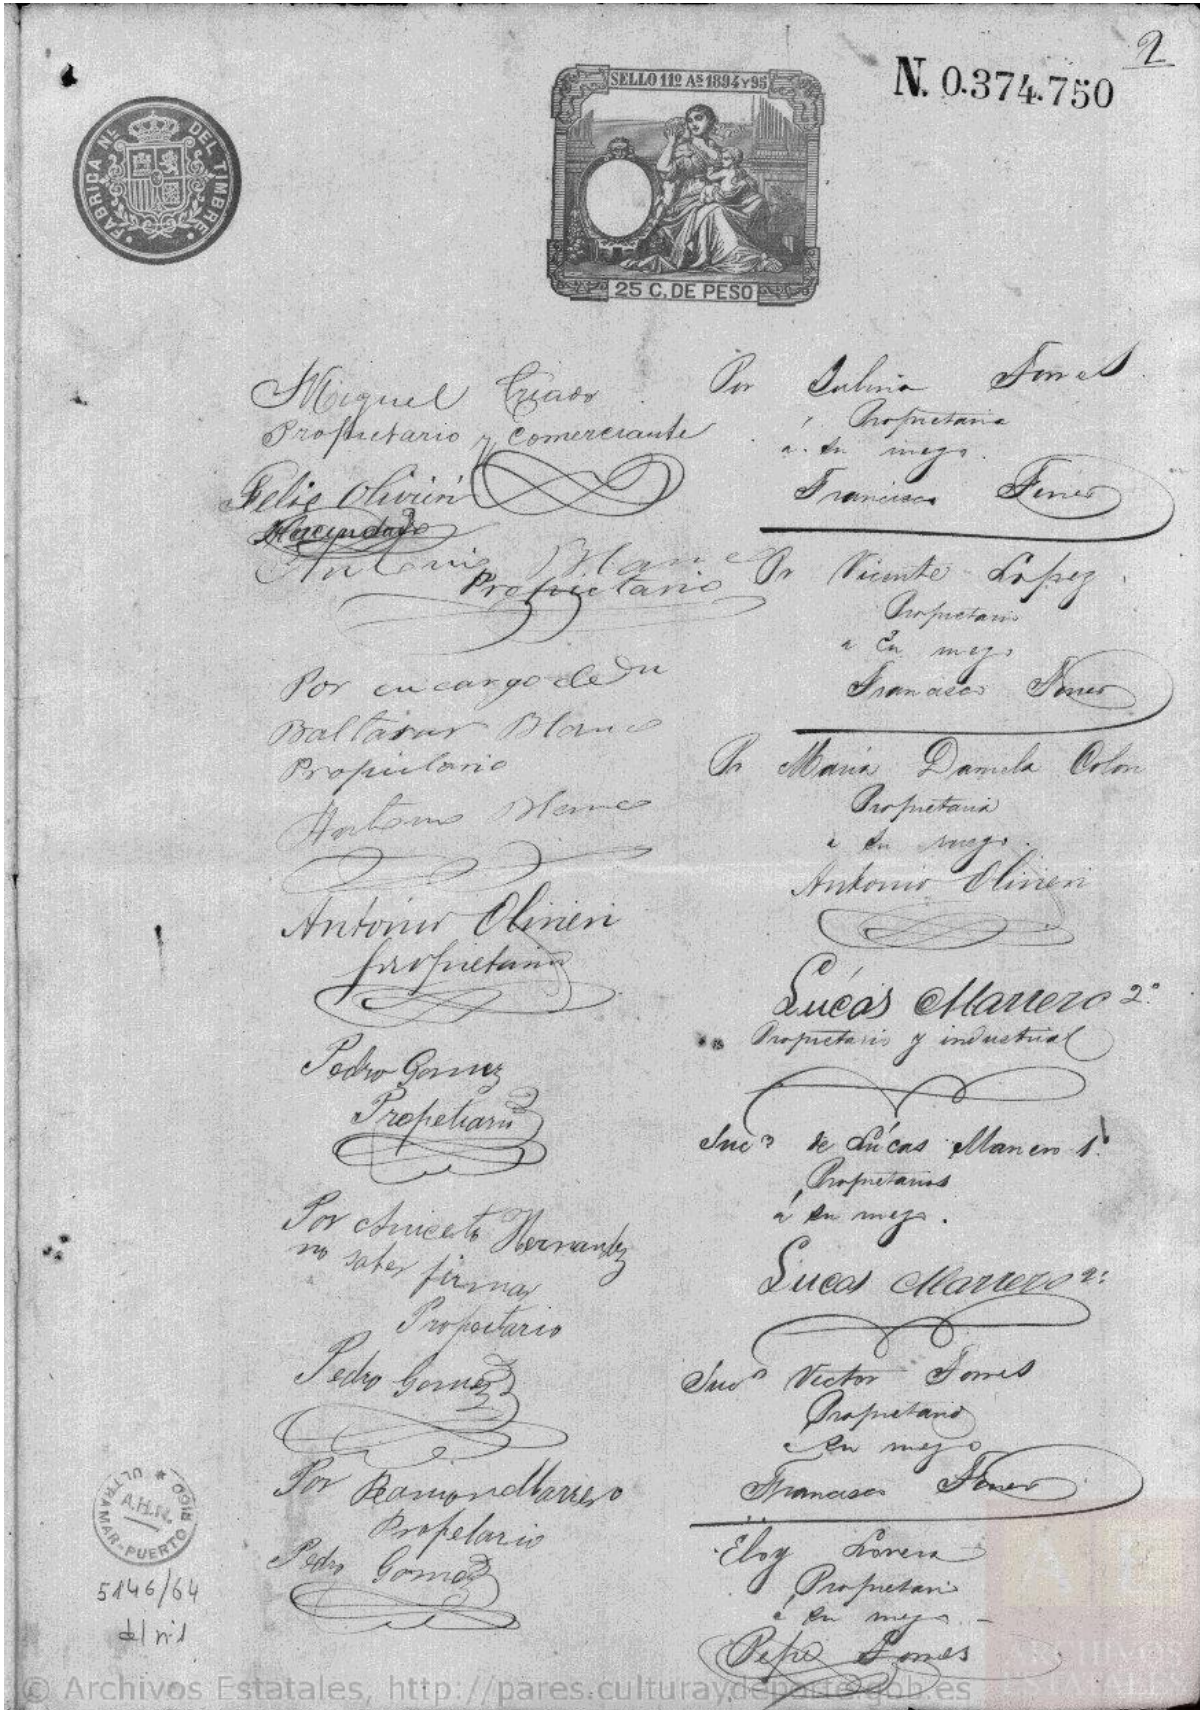 2
N. 0.374.750
SELLO 11º Aˢ 1894 Y 95
25 C. DE PESO
FABRICA Nˡ DEL TIMBRE
Miguel Criado
Propietario y comerciante
Felix Olivieri
Hacendado
Antonio Blanco
Propietario
Por encargo de Dn
Baltasar Blanco
Propietario
Antonio Blanco
Antonio Olivieri
propietario
Pedro Gomez
Propetiario
Por Aniceto Hernandez
no saber firmar
Propietario
Pedro Gomez
Por Ramon Marrero
Propetario
Pedro Gomez
Por Torres
Propietaria
a su ruego.
Francisco
Pr Vicente Lopez.
Propietario
a su ruego
Francisco
Pr María Daniela Colon
Propietaria
a su ruego.
Antonio Olivieri
Lúcas Marrero 2º
Propietario y industrial
Sucⁿ de Lúcas Marrero 1º
Propietarios
á su ruego.
Lucas Marrero 2º
Sucⁿ Victor Torres
Propietario
a su ruego
Francisco
Eloy
Propietario
á su ruego
Pepe Torres
A.H.N.
ULTRAMAR-PUERTO RICO
5146/64
del nº 1
ARCHIVOS
ESTATALES
© Archivos Estatales, http://pares.culturaydeporte.gob.es